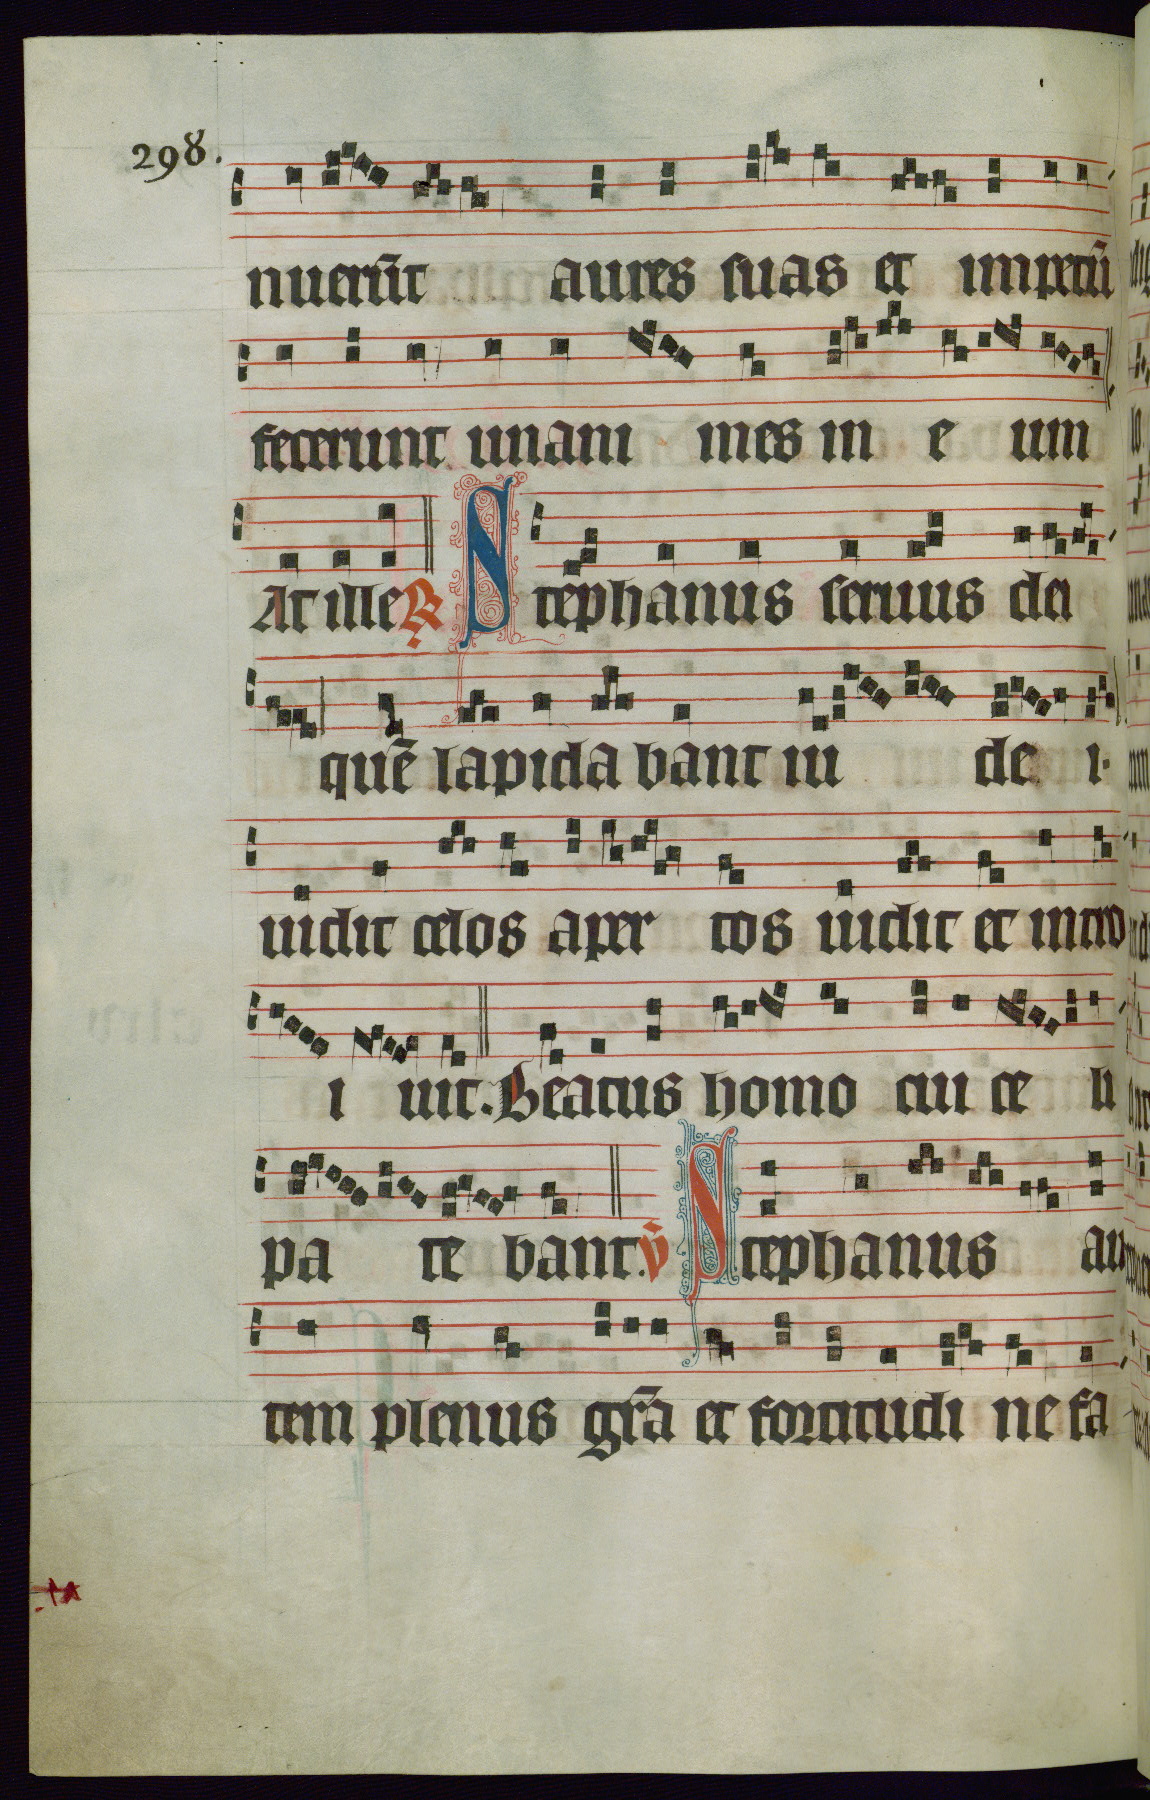 298.
nuerūt aures suas et impetū
fecerunt unani mes in e um
At ille R Stephanus seruus dei
quē lapida bant iu de i
uidit celos aper tos uidit et intro
i uit. Beatus homo cui ce li
pa te bant. v̄ Stephanus au
tem plenus grā et fortitudi ne fa